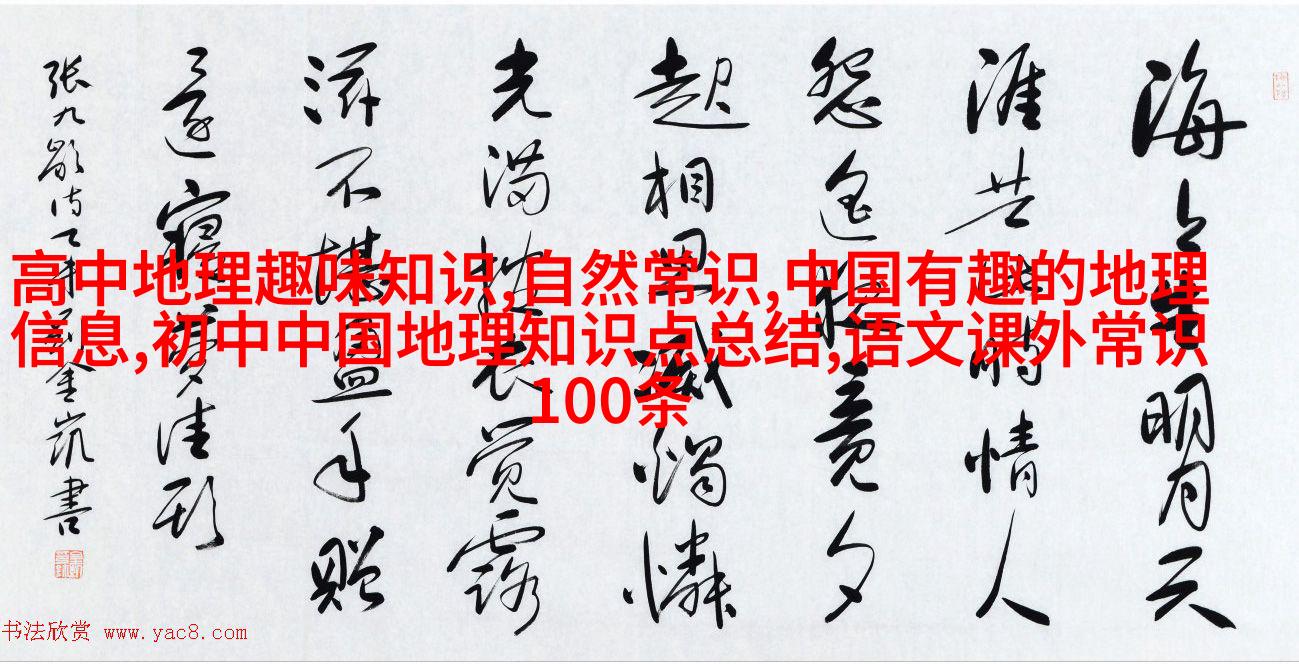 海上生明月天
涯共此時情人
怨遥夜竟夕
起相思滅燭憐
光满披衣覺露
滋不堪盈手贈
還寝夢佳期
张九龄诗一首金凯書
高中地理趣味知识,自然常识,中国有趣的地理
信息,初中中国地理知识点总结,语文课外常识
100条
书法欣赏 www.yac8.com